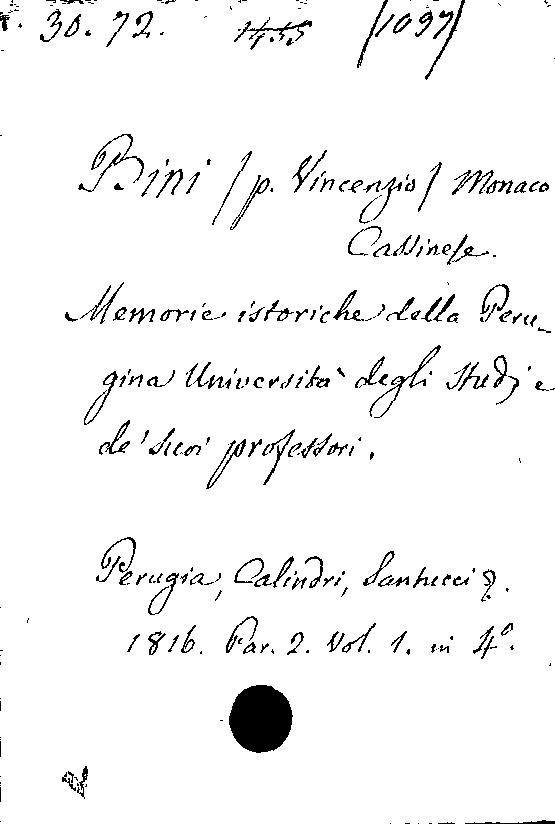 30. 72. 1455 /1097/
Bini / p. Vincenzio / Monaco
Cassinese.
Memorie istoriche della Peru-
gina Università degli Studj e
de' suoi professori.
Perugia, Calindri, Santucci &.
1816. Par. 2. Vol. 1. in 4º.